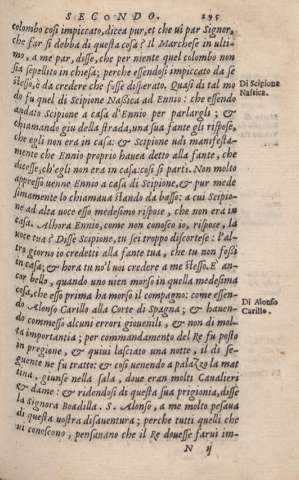 SECONDO. 295
colombo così impiccato, dicea pur, et che ui par Signor,
che far si debba di questa cosa? Il Marchese in ulti-
mo, a me par, disse, che per niente quel colombo non
sia sepellito in chiesa; perche essendosi impiccato da se
stesso, è da credere che fosse disperato. Quasi di tal mo
do fu quel di Scipione Nasica ad Ennio: che essendo
andato Scipione a casa d'Ennio per parlargli; &
chiamando giu della strada, una sua fante gli rispose,
che egli non era in casa: & Scipione udi manifesta-
mente che Ennio proprio hauea detto alla fante, che
dicesse, ch'egli non era in casa: cosi si partì. Non molto
appresso uenne Ennio a casa di Scipione, & pur mede
simamente lo chiamaua stando da basso: a cui Scipio-
ne ad alta uoce esso medesimo rispose, che non era in
casa. Alhora Ennio, come non conosco io, rispose, la
uoce tua? Disse Scipione, tu sei troppo discortese: l'al-
tro giorno io credetti alla fante tua, che tu non fossi
in casa, & hora tu no'l uoi credere a me stesso. E' an-
cor bello, quando uno uien morso in quella medesima
cosa, che esso prima ha morso il compagno: come essen-
do Alonso Carillo alla Corte di Spagna; & hauen-
do commesso alcuni errori giouenili, & non di mol-
ta importantia; per commandamento del Re fu posto
in pregione, & quiui lasciato una notte, il dì se-
guente ne fu tratto: & così uenendo a palazzo la mat
tina, giunse nella sala, doue eran molti Caualieri
& dame: & ridendosi di questa sua prigionia, disse
la Signora Boadilla. S. Alonso, a me molto pesaua
di questa uostra disauentura; perche tutti quelli che
ui conoscono, pensauano che il Re douesse farui im-
N ij
Di Scipione
Nasica.
Di Alonso
Carillo.